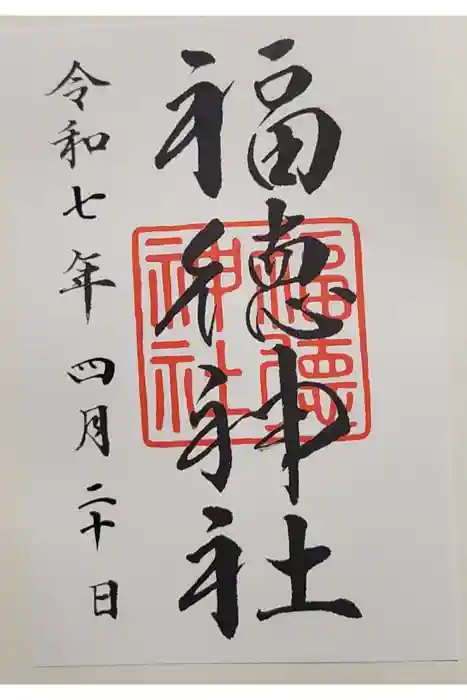 福徳神社
福徳神社
令和七年 四月二十日